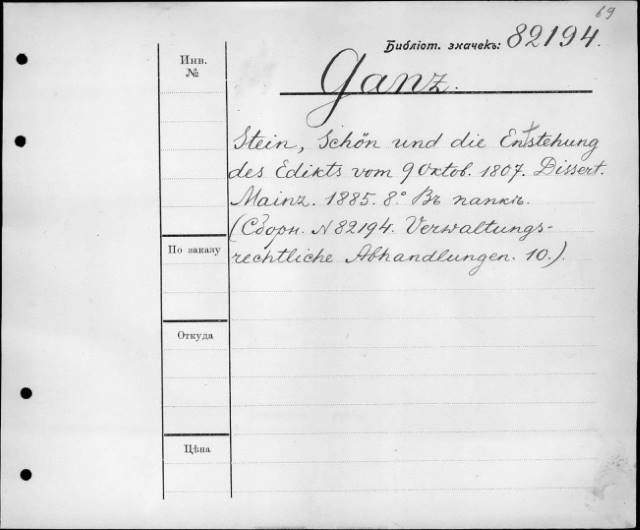 69
Библіот. значекъ: 82194.
Инв.
№
Ganz.
Stein, Schön und die Entstehung
des Edikts vom 9 Oktob. 1807. Dissert.
Mainz. 1885. 8.° Въ папкѣ.
(Сборн. N 82194. Verwaltungs-
rechtliche Abhandlungen. 10.)
По заказу
Откуда
Цѣна